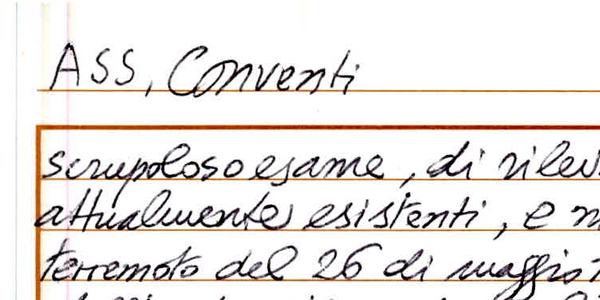 ASS, Conventi
scrupoloso esame, di
attualmente esistenti, e
terremoto del 26 di maggio